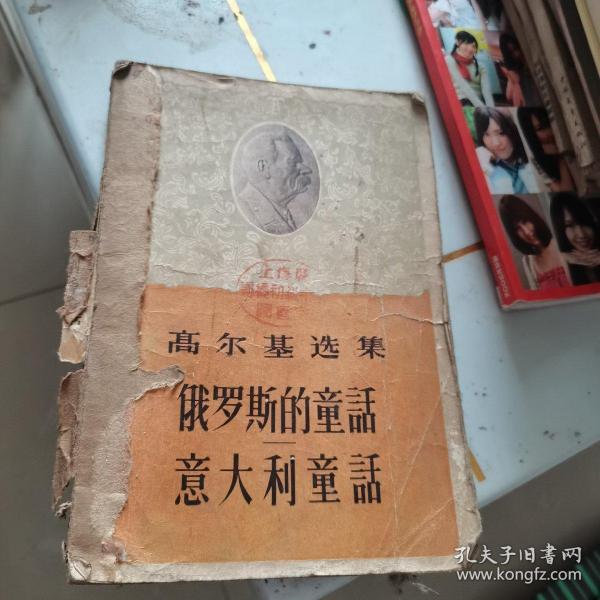 高尔基选集
俄罗斯的童話
意大利童話
孔夫子旧书网
www.kongfz.com